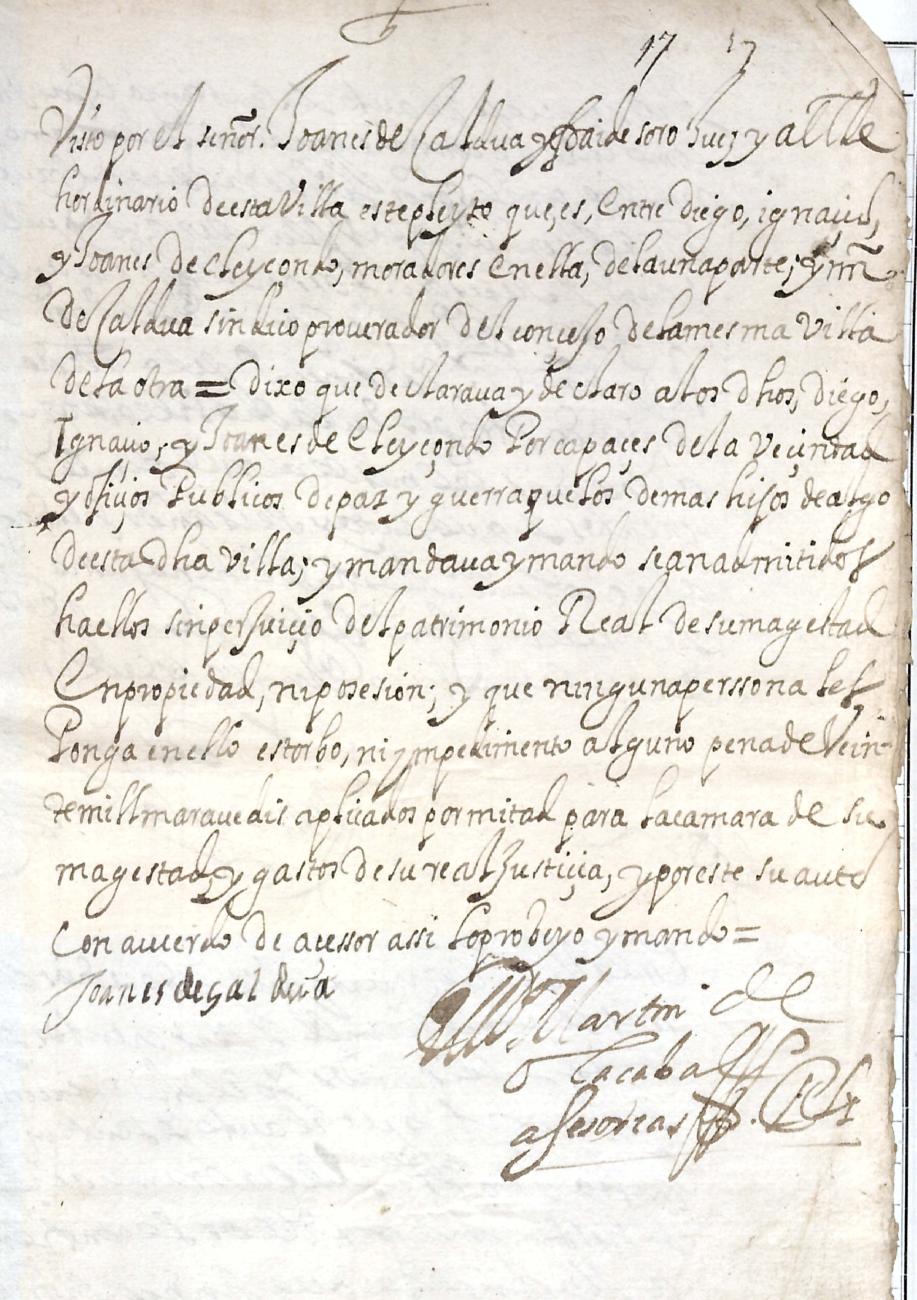 17 17
Visto por el señor. Joanes de Caldua y Juez y allde
hordinario deesta Villa estepleyto que, es, Entre diego, ignaçio,
y Joanes de Eleyçondo, moradores Enella, delaunaparte; y mn
de Caldua sindico procurador del conçejo delamesma Villa
dela otra = dixo que declaraua y declaro alos dhos, diego,
Ignaçio, y Joanes de Eleyçondo Por capaçes dela veçindad
y ofiçios Publicos depaz y guerra que los demas hijos dealgo
deesta dha villa; y mandaua y mando sean admitidos
haellos sinperjuiçio del patrimonio Real desumagestad
Enpropiedad, niposesión; y que ningunaperssona les
Ponga enello estorbo, ni ympedimento alguno penade Vein
temill marauedis aplicados pormitad para lacamara de su
magestad, y gastos desureal Justiçia, y poreste su auto
Con acuerdo de acessor assi loprobeyo y mando =
Joanes de galdua
Martin de
Olacabal
asesorias